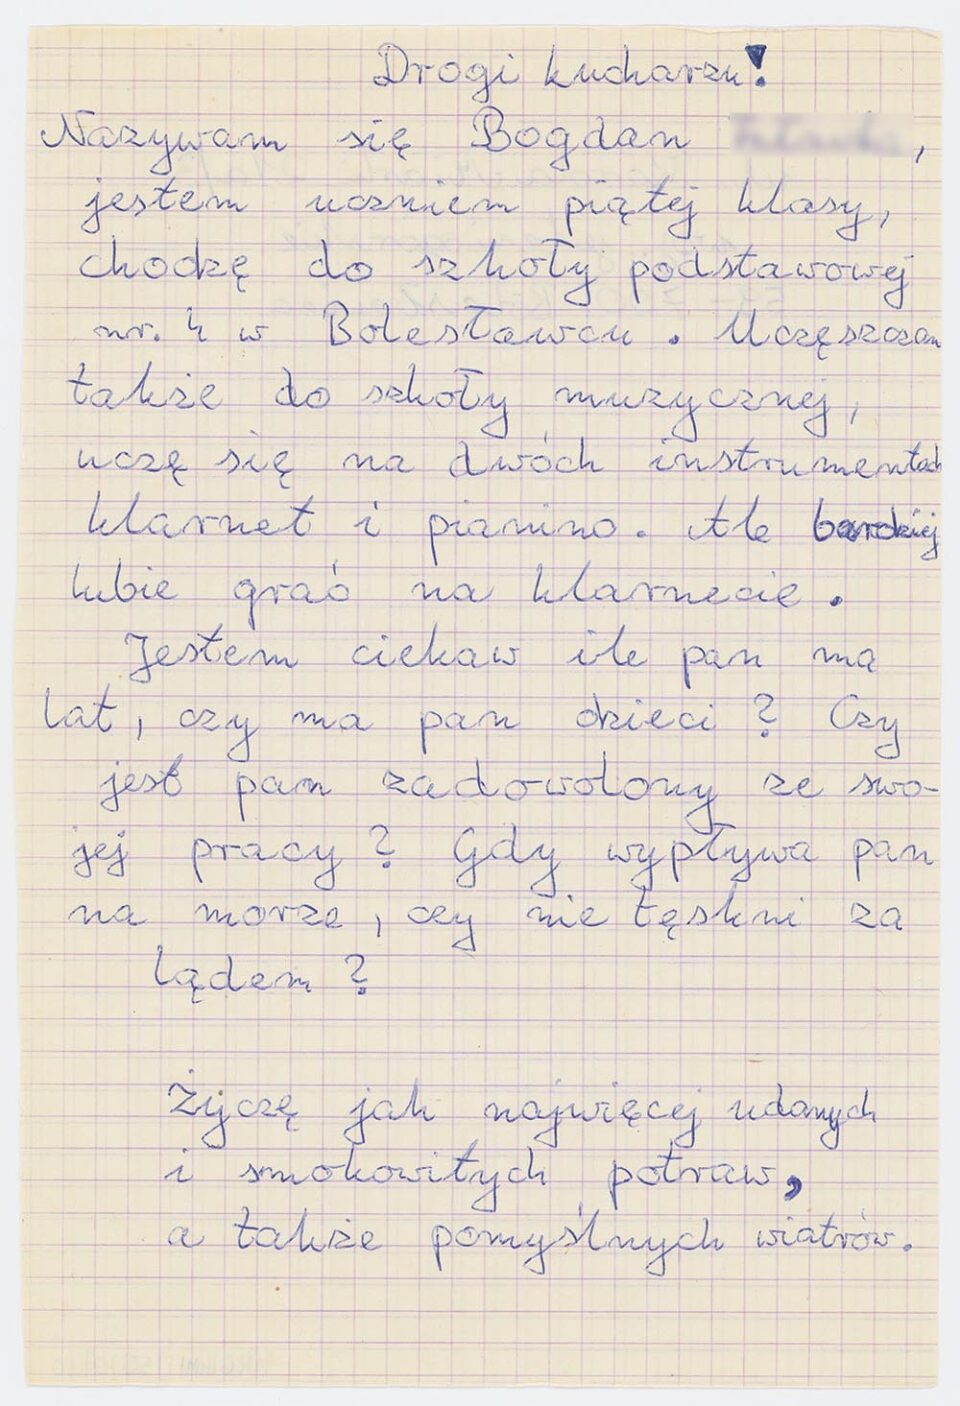 Drogi kucharzu!
Nazywam się Bogdan ,
jestem uczniem piątej klasy,
chodzę do szkoły podstawowej
nr. 4 w Bolesławcu. Uczęszczam
także do szkoły muzycznej,
uczę się na dwóch instrumentach
klarnet i pianino. Ale bardziej
lubie grać na klarnecie.
Jestem ciekaw ile pan ma
lat, czy ma pan dzieci? Czy
jest pan zadowolony ze swo-
jej pracy? Gdy wypływa pan
na morze, czy nie tęskni za
lądem?
Życzę jak najwięcej udanych
i smokowitych potraw,
a także pomyślnych wiatrów.